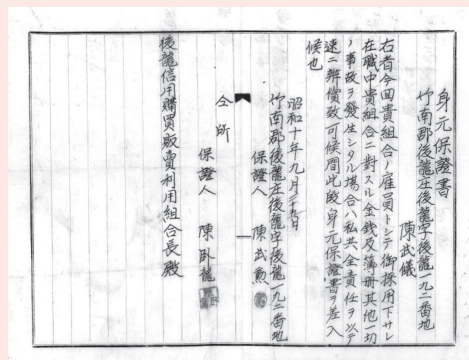 身元保證書
竹南郡後龍庄後龍字後龍一九二番地
陳武儀
右者今回貴組合ノ雇員トシテ御採用下サレ
在職中貴組合ニ對スル金錢及簿冊其他一切
ノ事故ヲ發生シタル場合ハ私共全責任ヲ以テ
速ニ辨償致可候間此段身元保證書ヲ差入
候也
昭和十年九月二十五日
竹南郡後龍庄後龍字後龍一九二番地
保證人 陳武勲
仝所
保證人 陳臥龍
後龍信用購買販賣利用組合長殿